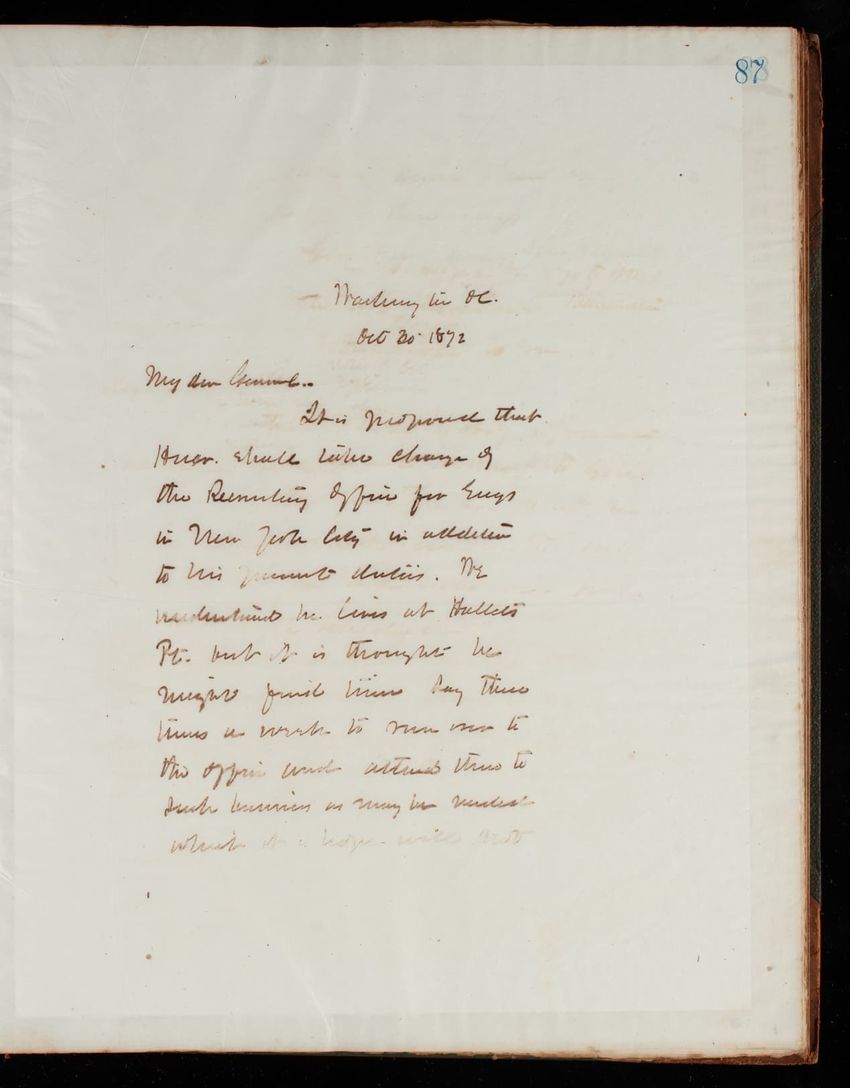 87
Washington DC.
Oct 30 1872
My dear General..
It is proposed that
Heuer. shall take charge of
the Recruiting Office for Engs
in New York City in addition
to his present duties. We
understand he lives at Halletts
Pt. but it is thought he
might find time say three
times a week to run over to
the office and attend there to
such business as may be needed
which it is hoped will not